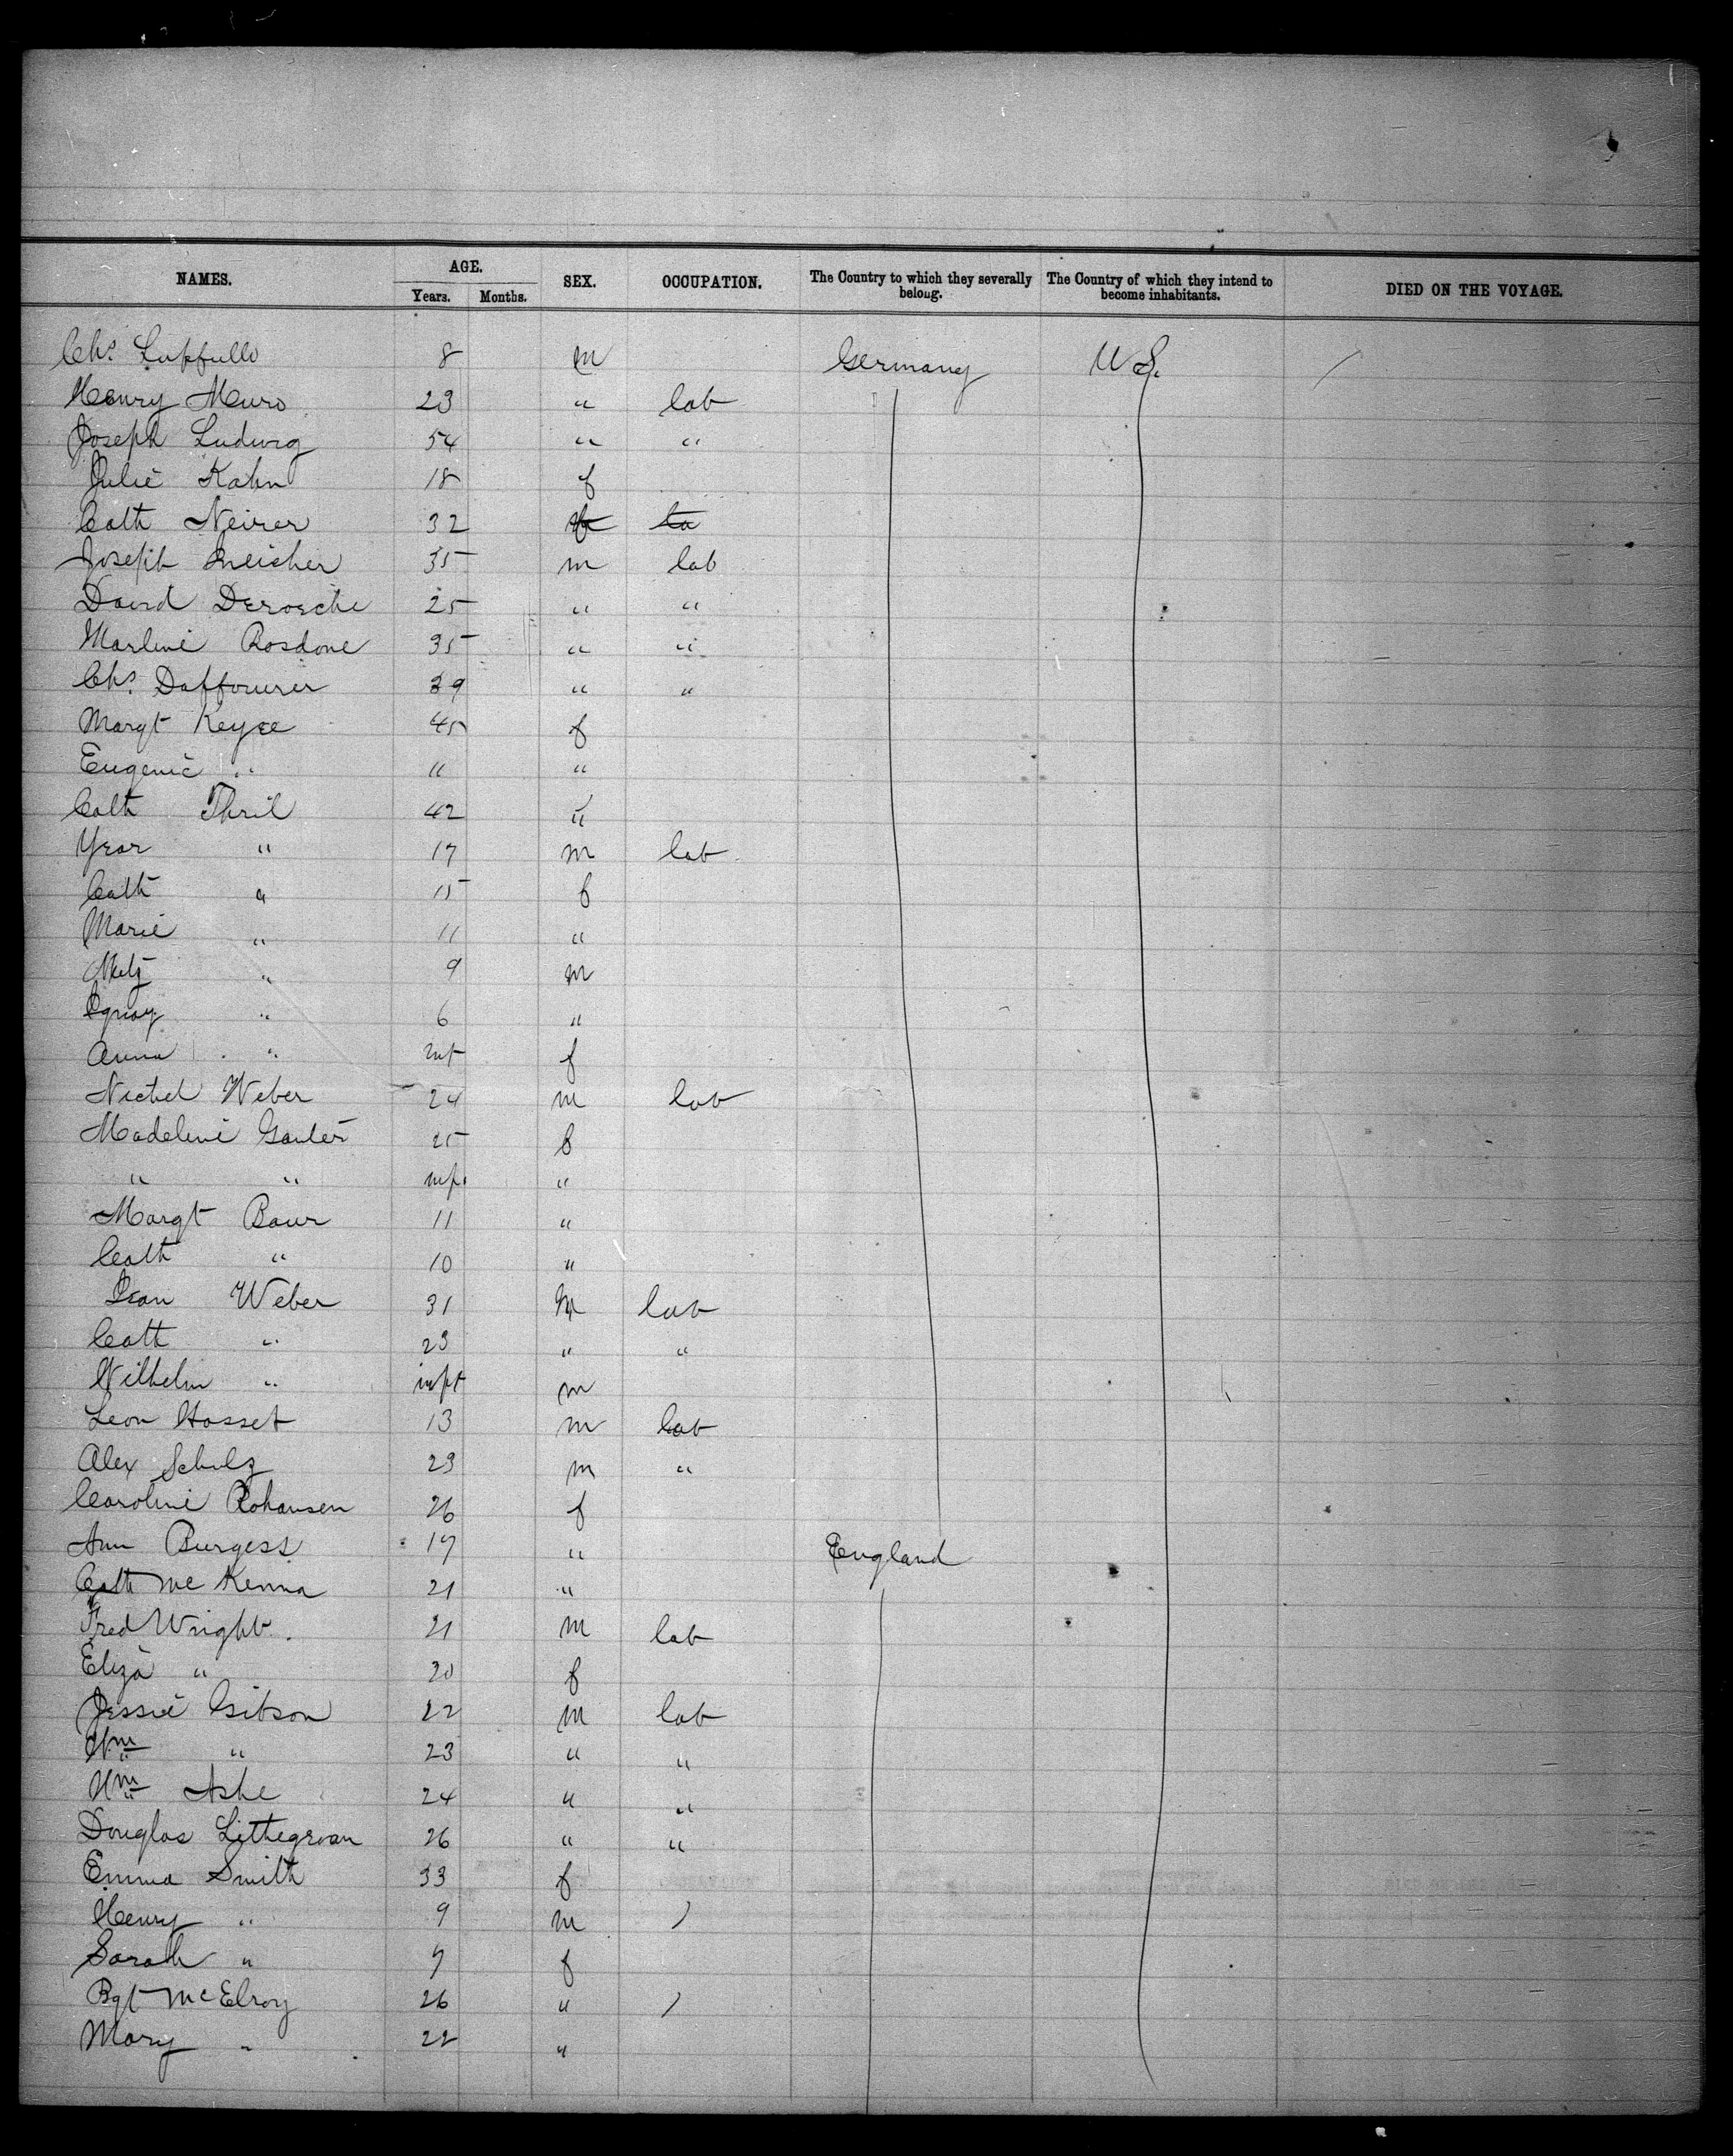 NAMES. AGE. SEX. OCCUPATION. The Country to which they severally belong. The Country of which they intend to become inhabitants. DIED ON THE VOYAGE.
Years. Months.
Chs. 8 m Germany U S.
Henry 23 " lab
Joseph Ludwig 54 " "
Julie Kahn 18 f
Cath Neirer 32
Joseph 35 m lab
David Deroeche 25 " "
Marline Rosdone 35 " "
Chs. 39 " "
Margt Keyee 45 f
Eugenie " 11 "
Cath Thril 42 "
Year " 17 m lab
Cath " 15 f
Marie " 11 "
Metz " 9 m
" 6 "
Anna " inft f
Nichel Weber 24 m lab
Madeline 25 f
" " inft "
Margt Baur 11 "
Cath " 10 "
Jean Weber 31 m lab
Cath " 23 " "
Wilhelm " inft m
Leon Hosset 13 m lab
Alex Schulz 23 m "
Caroline Rohansen 26 f
Ann Burgess 17 " England
Cath McKenna 21 "
Fred Wright. 21 m lab
Eliza " 20 f
Jessie Gibson 22 m lab
Wm " 23 " "
Wm Ashe 24 " "
Douglas Lithegroan 26 " "
Emma Smith 33 f
Henry " 9 m
Sarah " 7 f
Bgt McElroy 26 "
Mary " 22 "